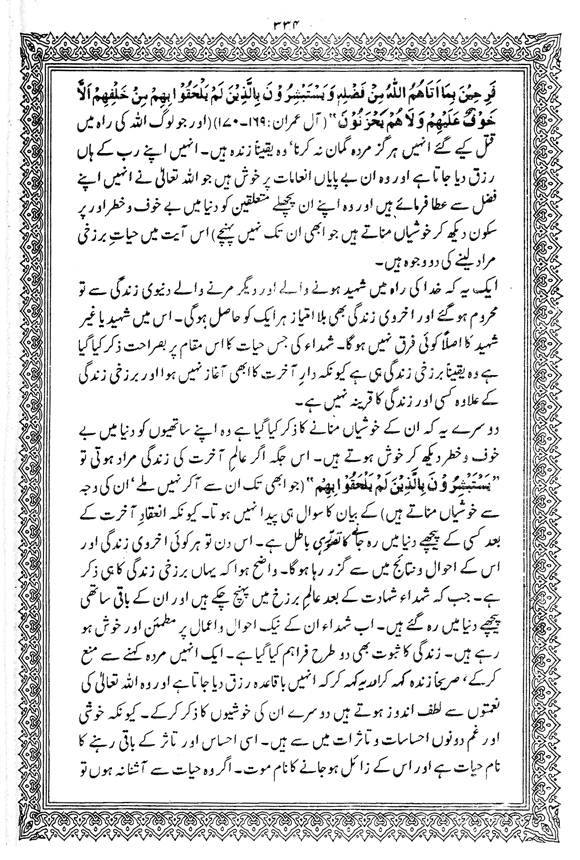 ۳۳۴
فَرِحِیْنَ بِمَا اٰتَاهُمُ اللّٰهُ مِنْ فَضْلِهٖ وَیَسْتَبْشِرُوْنَ بِالَّذِیْنَ لَمْ یَلْحَقُوْا بِهِمْ مِنْ خَلْفِهِمْ اَلَّا
خَوْفٌ عَلَیْهِمْ وَلَا هُمْ یَحْزَنُوْنَ" (آل عمران: ۱۶۹-۱۷۰) (اور جو لوگ اللہ کی راہ میں
قتل کیے گئے انہیں ہرگز مردہ گمان نہ کرنا' وہ یقیناً زندہ ہیں۔ انہیں اپنے رب کے ہاں
رزق دیا جاتا ہے اور وہ ان بے پایاں انعامات پر خوش ہیں جو اللہ تعالیٰ نے انہیں اپنے
فضل سے عطا فرمائے ہیں اور وہ اپنے ان پچھلے متعلقین کو دنیا میں بے خوف و خطر اور پر
سکون دیکھ کر خوشیاں مناتے ہیں جو ابھی ان تک نہیں پہنچے) اس آیت میں حیات برزخی
مراد لینے کی دو وجوہ ہیں۔
ایک یہ کہ خدا کی راہ میں شہید ہونے والے اور دیگر مرنے والے دنیوی زندگی سے تو
محروم ہو گئے اور اخروی زندگی بھی بلا امتیاز ہر ایک کو حاصل ہوگی۔ اس میں شہید یا غیر
شہید کا اصلاً کوئی فرق نہیں ہوگا۔ شہداء کی جس حیات کا اس مقام پر بصراحت ذکر کیا گیا
ہے وہ یقیناً برزخی زندگی ہی ہے کیونکہ دار آخرت کا ابھی آغاز نہیں ہوا اور برزخی زندگی
کے علاوہ کسی اور زندگی کا قرینہ نہیں ہے۔
دوسرے یہ کہ ان کے خوشیاں منانے کا ذکر کیا گیا ہے وہ اپنے ساتھیوں کو دنیا میں بے
خوف و خطر دیکھ کر خوش ہوتے ہیں۔ اس جگہ اگر عالم آخرت کی زندگی مراد ہوتی تو
"یَسْتَبْشِرُوْنَ بِالَّذِیْنَ لَمْ یَلْحَقُوْا بِهِمْ" (جو ابھی تک ان سے آکر نہیں ملے' ان کی وجہ
سے خوشیاں مناتے ہیں) کے بیان کا سوال ہی پیدا نہیں ہوتا۔ کیونکہ انعقاد آخرت کے
بعد کسی کے پیچھے دنیا میں رہ جانے کا تصور ہی باطل ہے۔ اس دن تو ہر کوئی اخروی زندگی اور
اس کے احوال و نتائج میں سے گزر رہا ہوگا۔ واضح ہوا کہ یہاں برزخی زندگی کا ہی ذکر
ہے۔ جب کہ شہداء شہادت کے بعد عالم برزخ میں پہنچ چکے ہیں اور ان کے باقی ساتھی
پیچھے دنیا میں رہ گئے ہیں۔ اب شہداء ان کے نیک احوال و اعمال پر مطمئن اور خوش ہو
رہے ہیں۔ زندگی کا ثبوت بھی دو طرح فراہم کیا گیا ہے۔ ایک انہیں مردہ کہنے سے منع
کرکے' صریحاً زندہ کہہ کر اور یہ کہہ کر کہ انہیں باقاعدہ رزق دیا جاتا ہے اور وہ اللہ تعالیٰ کی
نعمتوں سے لطف اندوز ہوتے ہیں دوسرے ان کی خوشیوں کا ذکر کرکے۔ کیونکہ خوشی
اور غم دونوں احساسات و تاثرات میں سے ہیں۔ اسی احساس اور تاثر کے باقی رہنے کا
نام حیات ہے اور اس کے زائل ہو جانے کا نام موت۔ اگر وہ حیات سے آشنا نہ ہوں تو